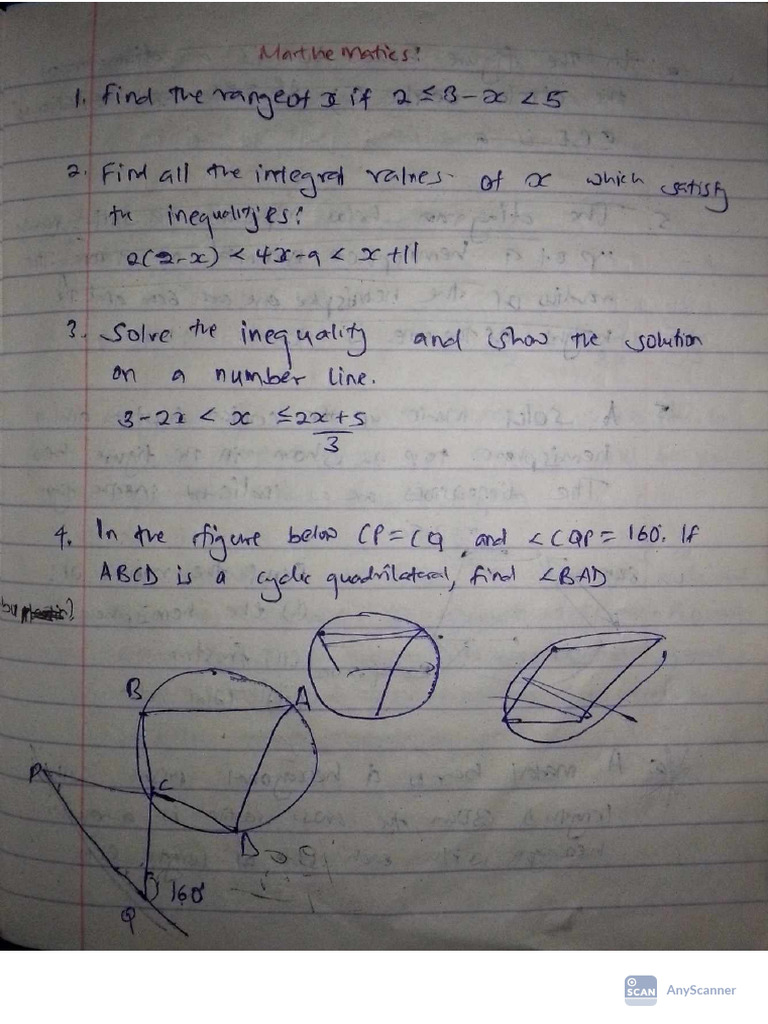 Marthematics!
1. Find the range of x if 2 ≤ 3 - x < 5
2. Find all the integral values of x which satisfy
the inequalities:
2(2-x) < 4x-9 < x+11
3. Solve the inequality and show the solution
on a number line.
3-2x < x ≤ 2x+5
3
4. In the figure below CP = CQ and ∠CQP = 160°. If
ABCD is a cyclic quadrilateral, find ∠BAD
B
A
P
C
D
160°
Q
SCAN AnyScanner